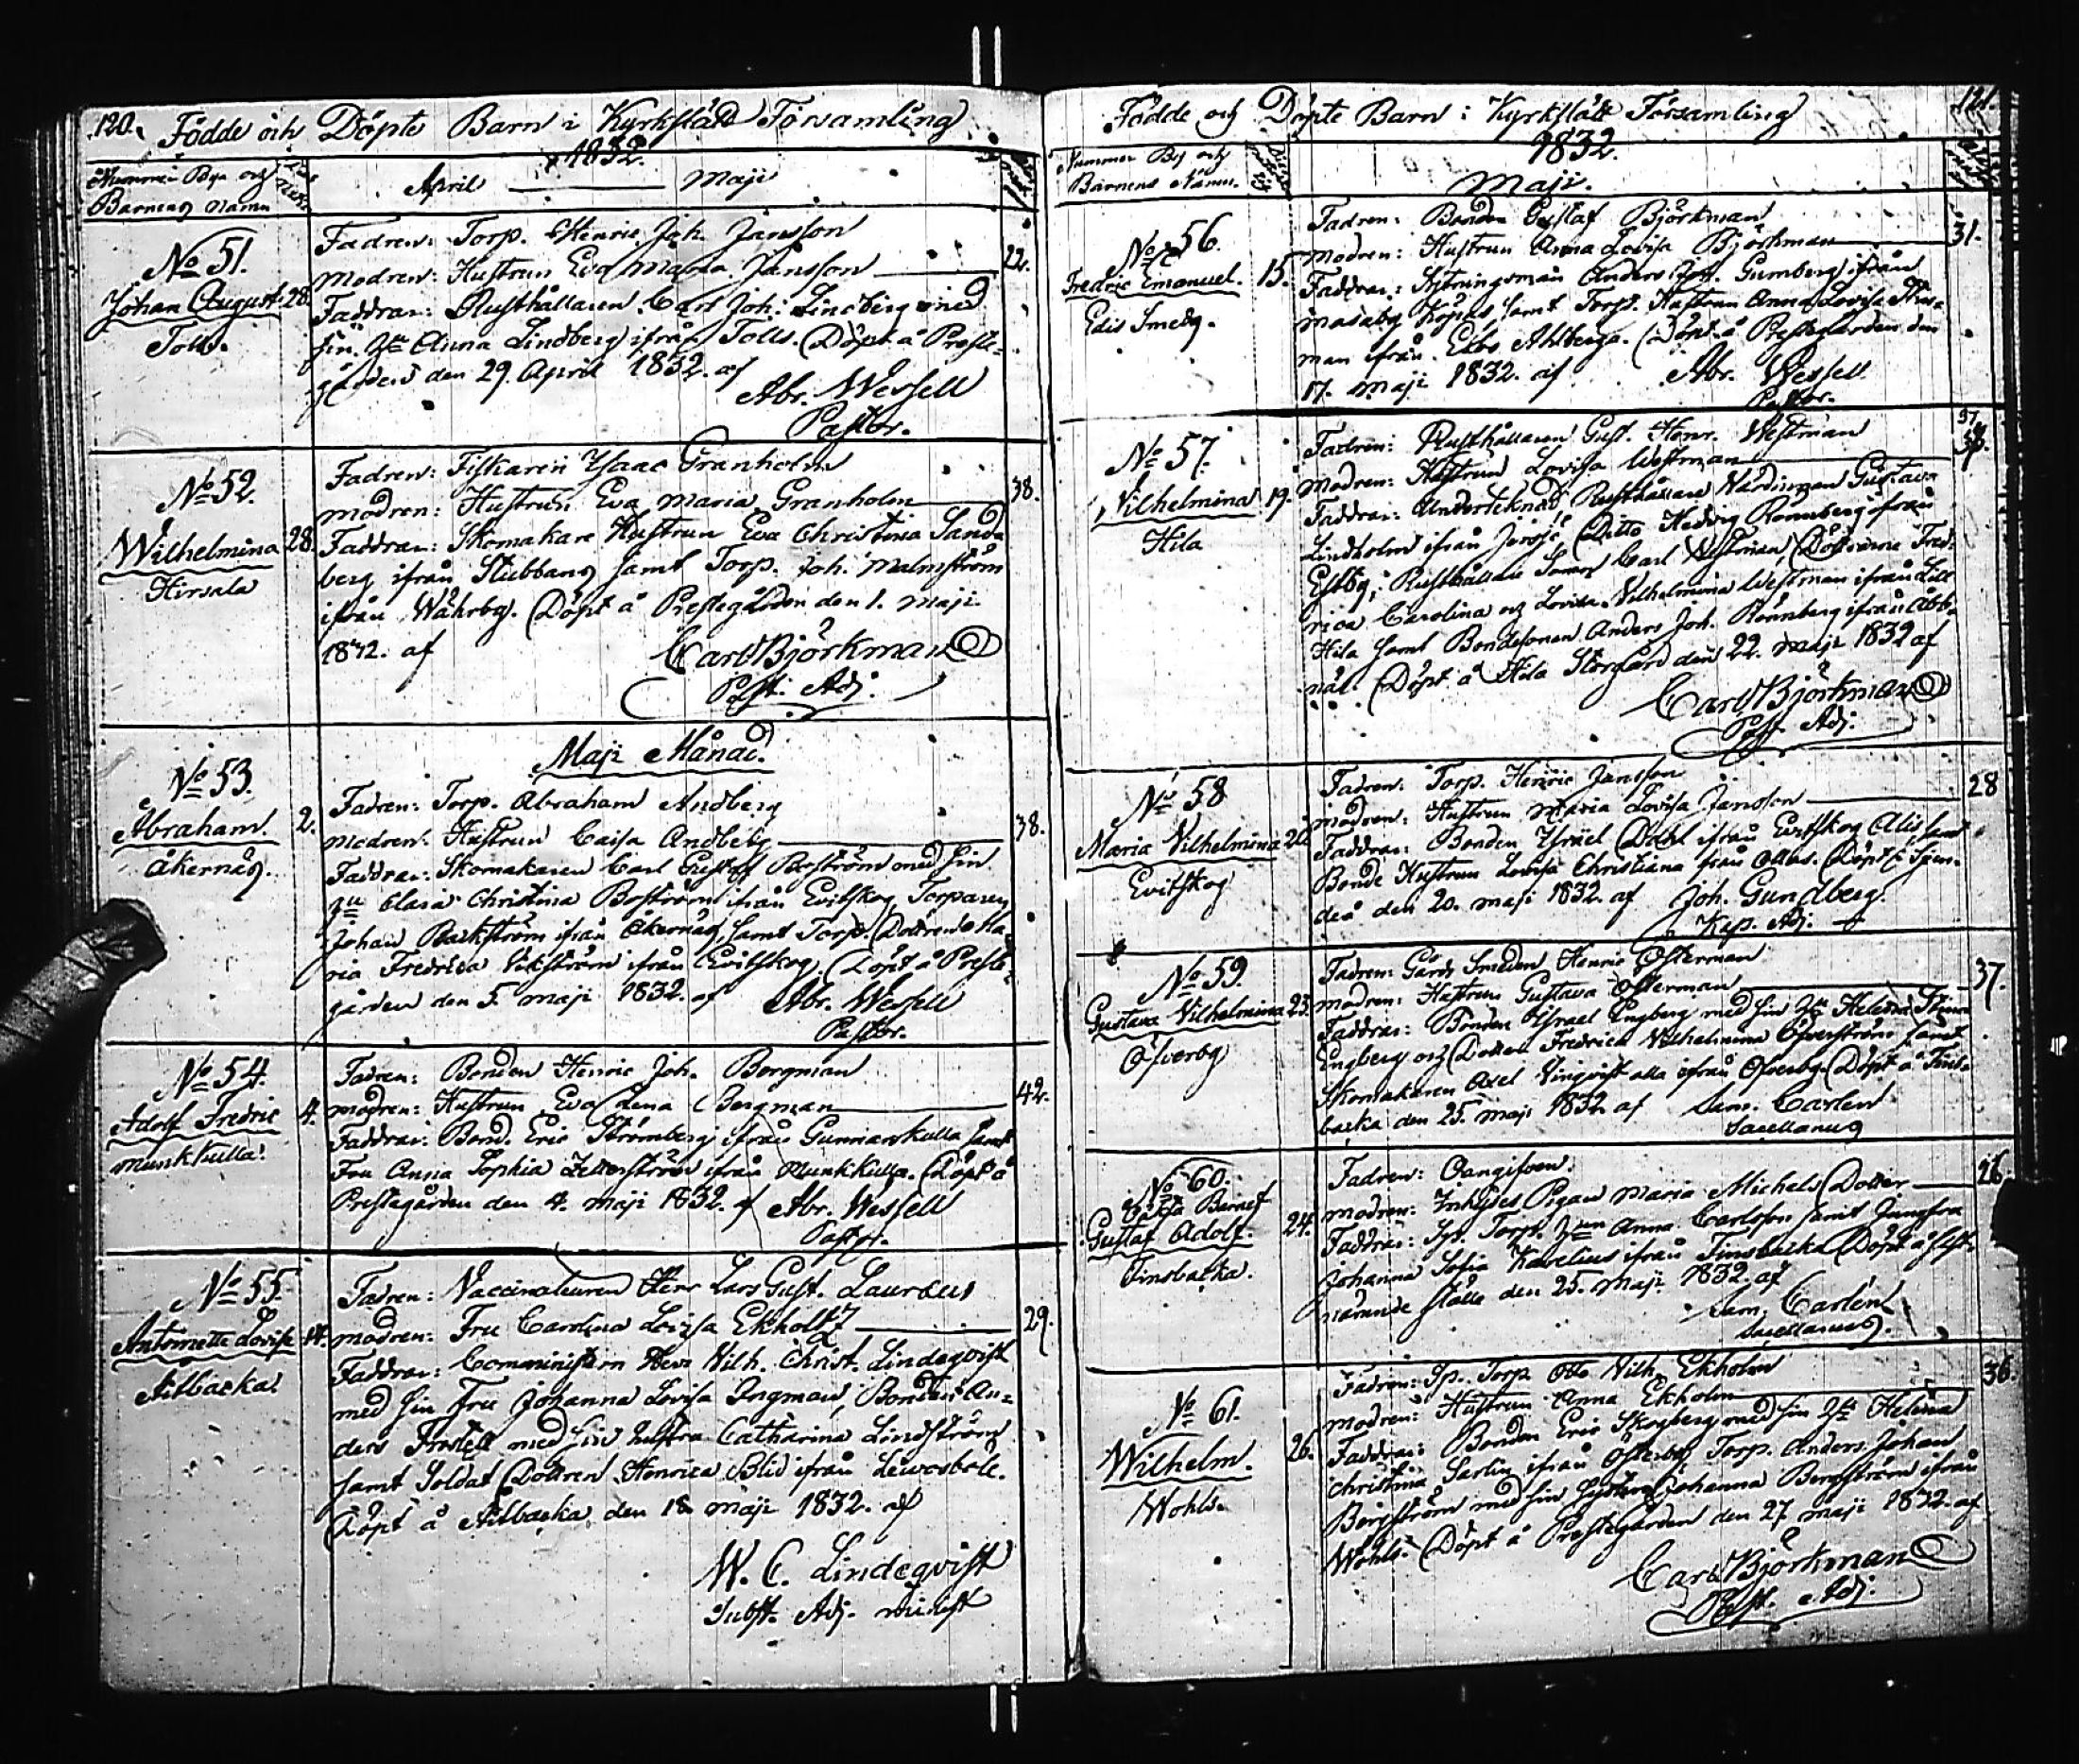 120. Födde och Döpte Barn i Kyrkslätt Församling
1832.
Nummer Bya och
Barnens namn
April — Maji
No 51.
Johan August. 28.
Tolls.
Fadren: Torp. Henric Joh. Jansson
Modren: Hustrun Eva Maria Jansson — 22.
Faddrar: Rusthållaren Carl Joh: Lindberg med
sin Hu Anna Lindberg ifrån Tolls. Döpt å Preste-
gården den 29. April 1832. af
Abr. Wessell
Pastor.
No 52.
Wilhelmina 28.
Hirsala
Fadren: Fiskaren Ysaac Granholm
modren: Hustrun Eva Maria Granholm — 38.
Faddrar: Skomakare Hustrun Eva Christina Sand
berg ifrån Stubbans samt Torp. Joh. Malmström
ifrån Wåhrby. Döpt å Prestegården den 1. maji
1832. af
Carl Björkman
Past. Adj.
Maji Månad.
No 53.
Abraham. 2.
Åkernäs.
Fadren: Torp. Abraham Andberg
modren: Hustrun Caisa Andberg — 38.
Faddrar: Skomakaren Carl Gustaff Boström med sin
Hu Clara Christina Boström ifrån Evitskog, Torparen
Johan Backström ifrån Åkernäs, samt Torp. Dottren Ma-
ria Fredrica Vikström ifrån Evitskog. Döpt å Preste-
gården den 5. maji 1832. af Abr. Wessell
Pastor.
No 54.
Adolf Fredric 4.
Munkkulla.
Fadren: Bonden Henric Joh. Bergman
modren: Hustrun Eva Lena Bergman — 42.
Faddrar: Bond. Eric Strömberg ifrån Gunnarskulla samt
Fru Anna Sophia Zetterström ifrån Munkkulla. Döpt å
Prestegården den 4. maji 1832. af Abr. Wessell
Pastor.
No 55.
Antoinette Lovisa 14.
Aitbacka.
Fadren: Vaccinateuren Herr Lars Gust. Lauræus
modren: Fru Carolina Lovisa Ekholtz — 29.
Faddrar: Comministern Herr Wilh. Christ. Lindeqvist
med sin Fru Johanna Lovisa Ingman, Bonden An-
ders Frostell med sin hustru Catharina Lindström
samt Soldat Dottren Henrica Blid ifrån
Döpt å Aitbacka den 18 maji 1832. af
W. C. Lindeqvist
Subst. Adj. minist
Födde och Döpte Barn i Kyrkslätt Församling 121.
1832.
Nummer By och
Barnens Namn.
Maji.
No 56.
Fredric Emanuel. 15.
Edis Smeds.
Fadren: Bonden Gustaf Björkman
Modren: Hustrun Anna Lovisa Björkman — 31.
Faddrar: Sytningsman Anders Joh. Gumberg ifrån
Masaby Köpas samt Torp. Hustrun Anna Lovisa
man ifrån Ekbo Ahlberga. Döpt å Prestegården den
17. maji 1832. af Abr. Wessell
Pastor.
No 57.
Wilhelmina 19.
Hila
Fadren: Rusthållaren Gust. Henr. Westman
modren: Hustrun Lovisa Westman
Faddrar: Undertecknad, Rusthållare Värdinnan Gustava
Lindholm ifrån Ditto Hedvig Rönnberg ifrån
Estby, Rusthållare Sonen Carl Westman, Döttrarne Fred-
rica Carolina och Lovisa Vilhelmina Westman ifrån Lill
Hila samt Bondesonen Anders Joh. Rönnberg ifrån Abb-
näs. Döpt å Hila Storgård den 22. maji 1832 af
Carl Björkman
Past. Adj.
No 58
Maria Vilhelmina 20
Evitskog
Fadren: Torp. Henric Jansson
modren: Hustrun Maria Lovisa Jansson — 28
Faddrar: Bonden Ysrael Dahl ifrån Evitskog Alis samt
Bonde Hustrun Lovisa Christiana från Döpt i Sjun-
deå den 20. maji 1832. af Joh. Gundberg.
Kap. Adj.
No 59.
Gustava Vilhelmina 23.
Öfverby
Fadren: Gårds Smeden Henric Österman
modren: Hustrun Gustava Österman — 37.
Faddrar: Bonden Israel Engberg med sin Hu Helena
Engberg och Dotter Fredrica Vilhelmina Öfverström samt
Skomakaren Axel Vinqvist alla ifrån Öfverby. Döpt å Tins-
backa den 25. maji 1832 af Sam. Carlen
Sacellanus
No 60.
Gustaf Adolf. 24.
Tinsbacka.
Fadren: Oangifven.
modren: Inhyses Pigan Maria Michels Dotter — 26
Faddrar: Torp. Hun Anna Carlsson samt Jungfru
Johanna Sofia Karelius ifrån Tinsbacka. Döpt å sist-
nämnde ställe den 25. maji 1832. af
Sam. Carlén
Sacellanus.
No 61.
Wilhelm. 26.
Wohls.
Fadren: Sp. Torp. Otto Vilh. Ekholm
modren: Hustrun Anna Ekholm — 36.
Faddrar: Bonden Eric Skogberg med sin Hu Helena
Christina Sarlin ifrån Österby, Torp. Anders Johan
Bergström med sin Syster Johanna Bergström ifrån
Wohls. Döpt å Prestegården den 27 maji 1832. af
Carl Björkman
Past. Adj.